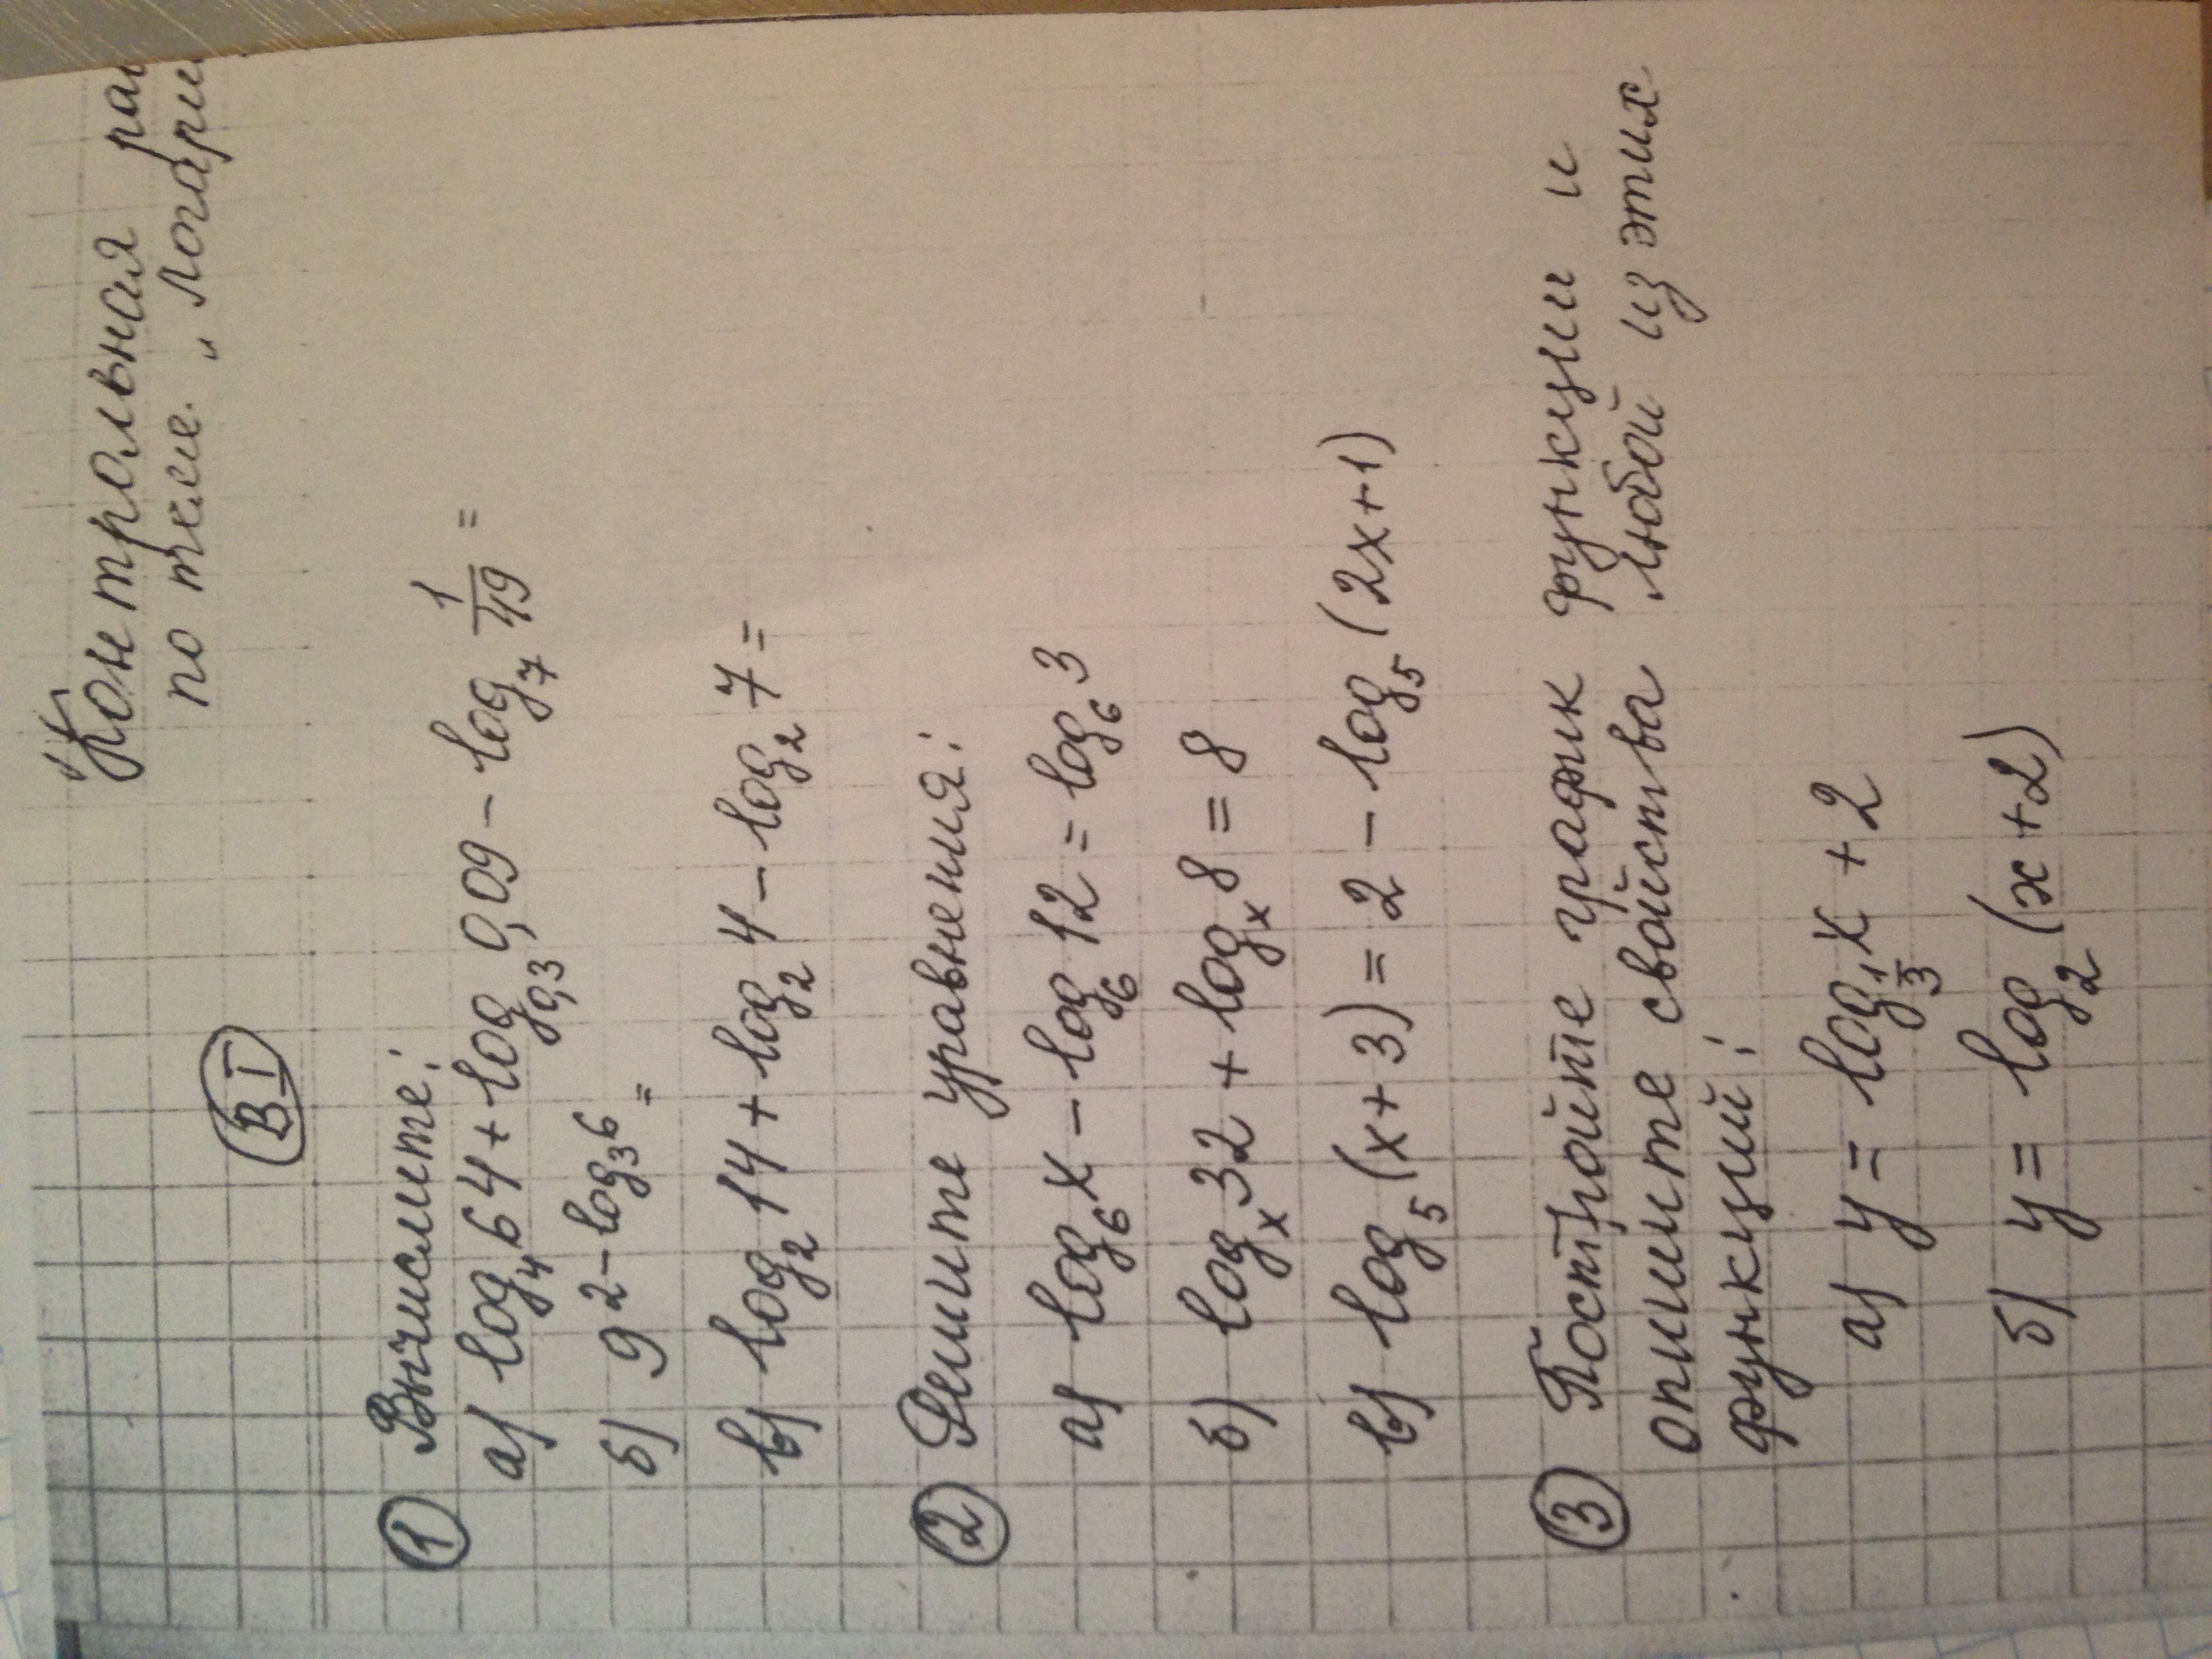 Контрольная
по теме „ Логари
В I
① Вычислите:
а) log₄ 64 + log₀,₃ 0,09 - log₇ 1/49 =
б) 9^(2 - log₃ 6) =
в) log₂ 14 + log₂ 4 - log₂ 7 =
② Решите уравнения:
а) log₆ x - log₆ 12 = log₆ 3
б) logₓ 32 + logₓ 8 = 8
в) log₅ (x + 3) = 2 - log₅ (2x + 1)
③ Постройте график функции и
опишите свойства любой из этих
функций:
а) y = log_(1/3) x + 2
б) y = log₂ (x + 2)